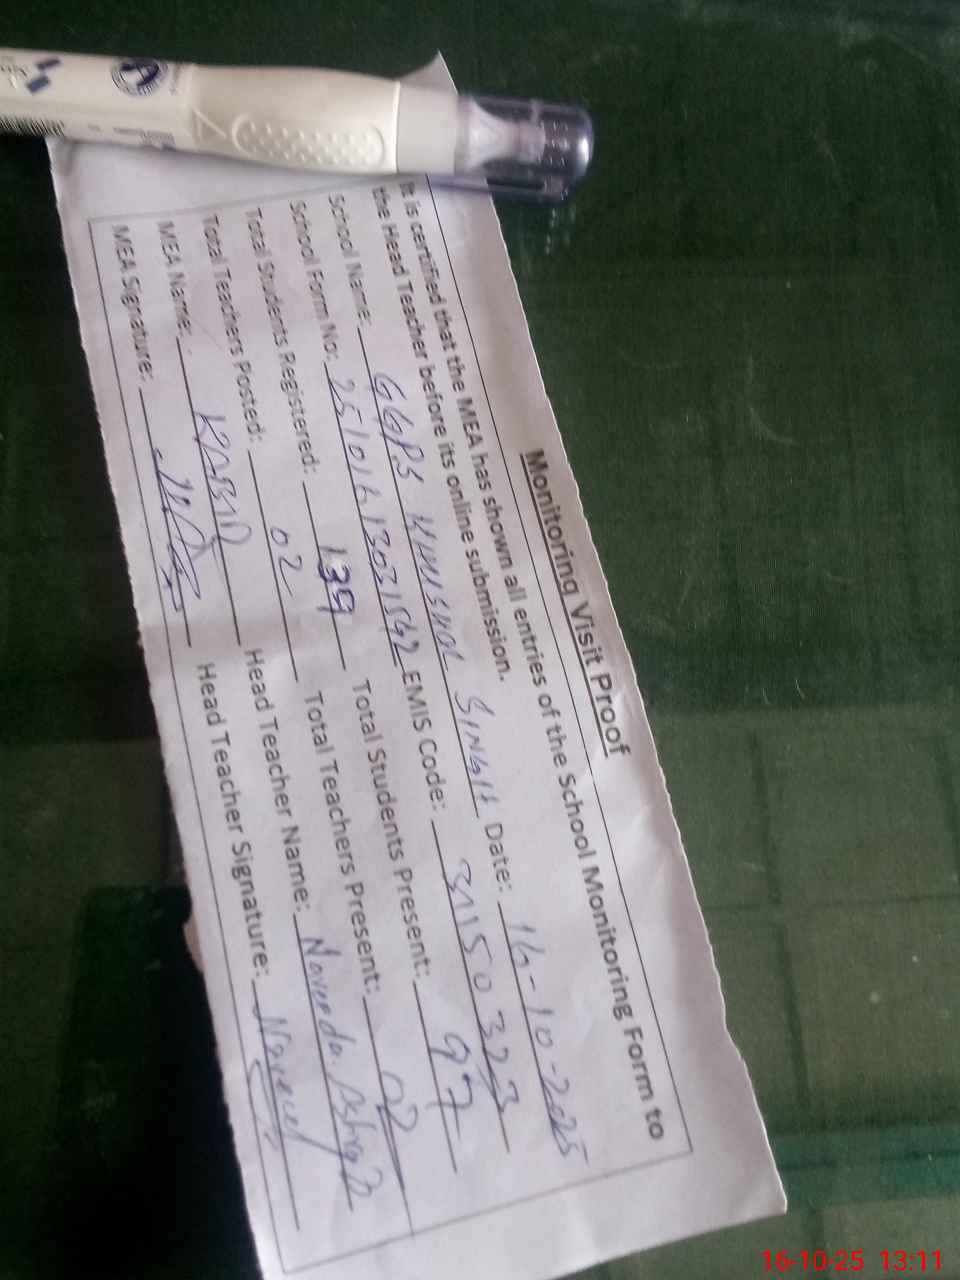 Monitoring Visit Proof
It is certified that the MEA has shown all entries of the School Monitoring Form to
the Head Teacher before its online submission.
School Name: GGPS SINGH Date: 16-10-2025
School Form No: EMIS Code: 31150323
Total Students Registered: 139 Total Students Present: 97
Total Teachers Posted: 02 Total Teachers Present: 02
MEA Name: Head Teacher Name:
MEA Signature: Head Teacher Signature:
16-10-25 13:11